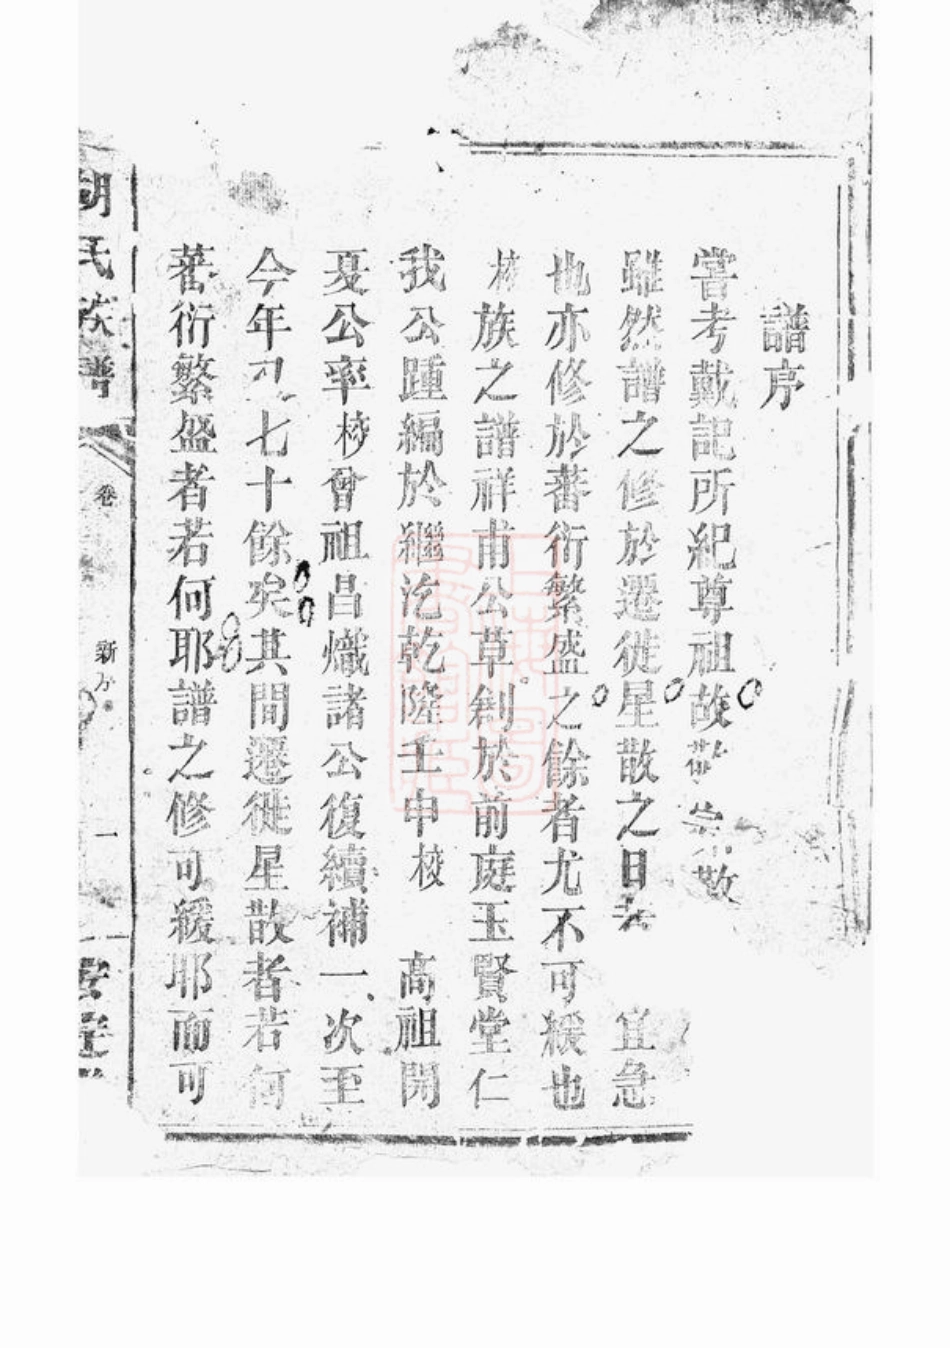 譜序
嘗考戴記所紀尊祖故敬宗敬
雖然譜之修於遷徙星散之日者宜急
也亦修於蕃衍繁盛之餘者尤不可緩也
校族之譜祥甫公草創於前庭玉賢堂仁
我公踵編於繼迄乾隆壬申校高祖開
夏公率校曾祖昌熾諸公復續補一次至
今年又七十餘矣其間遷徙星散者若何
蕃衍繁盛者若何耶譜之修可緩耶而可
胡氏族譜
卷
新序
一
安定